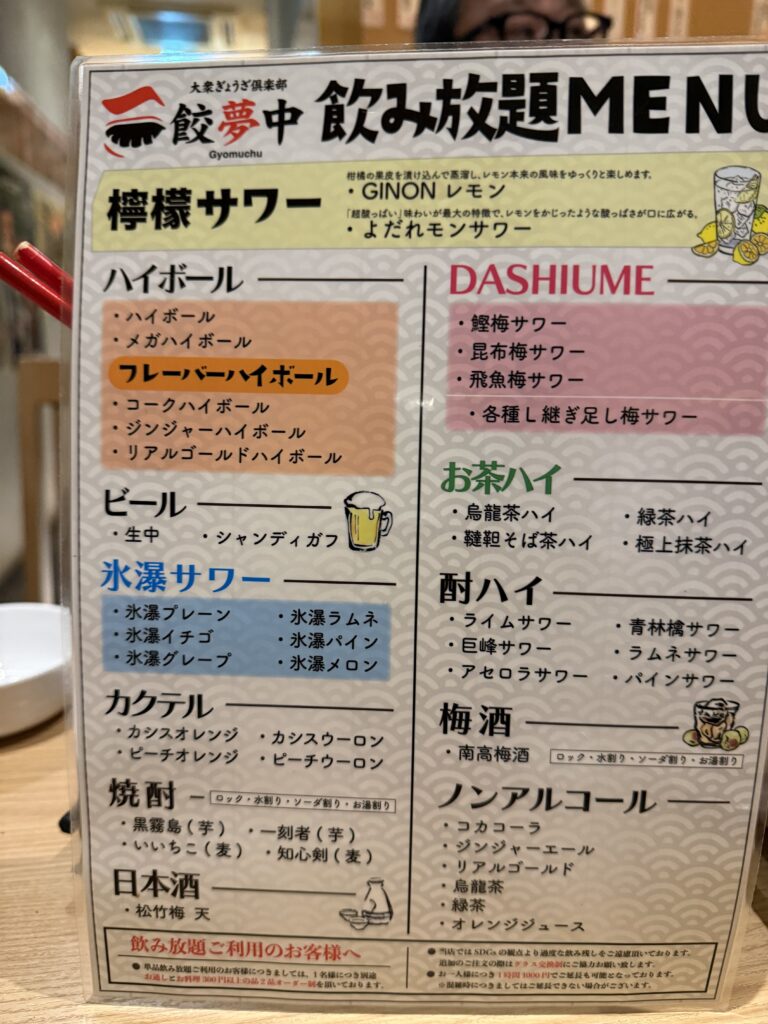 大衆ぎょうざ倶楽部
餃夢中
Gyomuchu
飲み放題MENU
檸檬サワー
柑橘の果皮を漬け込んで蒸溜し、レモン本来の風味をゆっくりと楽しめます。
・GINON レモン
「超酸っぱい」味わいが最大の特徴で、レモンをかじったような酸っぱさが口に広がる。
・よだれモンサワー
ハイボール
・ハイボール
・メガハイボール
フレーバーハイボール
・コークハイボール
・ジンジャーハイボール
・リアルゴールドハイボール
ビール
・生中 ・シャンディガフ
氷瀑サワー
・氷瀑プレーン ・氷瀑ラムネ
・氷瀑イチゴ ・氷瀑パイン
・氷瀑グレープ ・氷瀑メロン
カクテル
・カシスオレンジ ・カシスウーロン
・ピーチオレンジ ・ピーチウーロン
焼酎 ロック・水割り・ソーダ割り・お湯割り
・黒霧島(芋) ・一刻者(芋)
・いいちこ(麦) ・知心剣(麦)
日本酒
・松竹梅 天
DASHIUME
・鰹梅サワー
・昆布梅サワー
・飛魚梅サワー
・各種L継ぎ足し梅サワー
お茶ハイ
・烏龍茶ハイ ・緑茶ハイ
・韃靼そば茶ハイ ・極上抹茶ハイ
酎ハイ
・ライムサワー ・青林檎サワー
・巨峰サワー ・ラムネサワー
・アセロラサワー ・パインサワー
梅酒
・南高梅酒 ロック・水割り・ソーダ割り・お湯割り
ノンアルコール
・コカコーラ
・ジンジャーエール
・リアルゴールド
・烏龍茶
・緑茶
・オレンジジュース
飲み放題ご利用のお客様へ
● 単品飲み放題ご利用のお客様につきましては、1名様につき別途
お通しとお料理300円以上の品2品オーダー制を頂いております。
● 当店ではSDGsの観点より過度な飲み残しをご遠慮頂いております。
追加のご注文の際はグラス交換制にご協力お願い致します。
● お一人様につき1時間1000円でご延長も可能となっております。
※混雑時につきましてはご延長できない場合がございます。